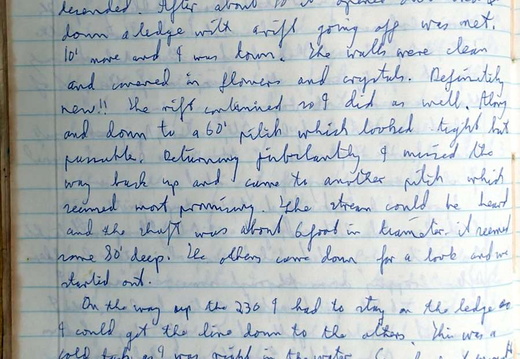 descended. After about 10' it opened
down a ledge with a rift going off was met.
10' more and I was down. The walls were clean
and covered in flowers and crystals. Definitely
new!! The rift continued so I did as well. Along
and down to a 60' pitch which looked tight but
passable. Returning jubilantly I missed the
way back up and came to another pitch which
seemed most promising. The stream could be heard
and the shaft was about 6 foot in diameter. it seemed
some 80' deep. The others came down for a look and we
started out.
On the way up the 230 I had to stay on the ledge so
I could get the line down to the others. This was a
cold job as I was right in the water.